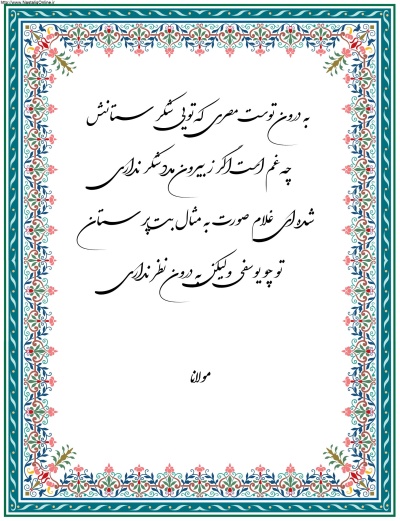 http://www.NastaliqOnline.ir
به درون توست مصری که تویی شکرستانش
چه غم است اگر ز بیرون مدد شکر نداری
شده‌ای غلام صورت به مثال بت‌پرستان
تو چو یوسفی ولیکن به درون نظر نداری
مولانا